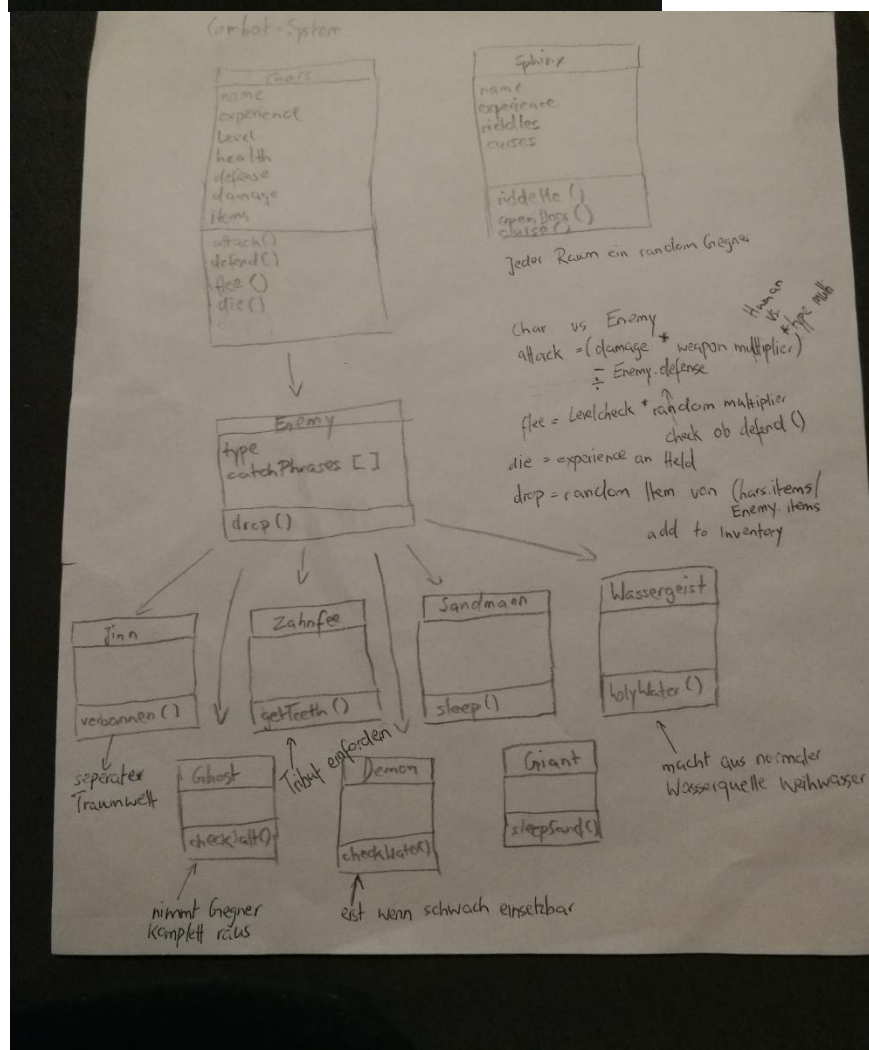 Combat-System
Chars
name
experience
Level
health
defense
damage
items
attack()
defend()
flee()
die()
Sphinx
name
experience
riddles
curses
openDoor()
curse()
Jeder Raum ein random Gegner
Char vs Enemy
attack = (damage * weapon multiplier) * type multi
Human
vs.
÷ Enemy.defense
flee = Levelcheck * random multiplier
check ob defend()
die = experience an Held
drop = random Item von Chars.items/
Enemy.items
add to Inventory
Enemy
type
catchPhrases []
drop()
Jinn
verbannen()
seperater
Traumwelt
Zahnfee
getTeeth()
Tribut einfordern
Sandmann
sleep()
Wassergeist
holyWater()
macht aus normaler
Wasserquelle Weihwasser
Ghost
checkSalt()
nimmt Gegner
komplett raus
Demon
checkWater()
erst wenn schwach einsetzbar
Giant
sleepSand()